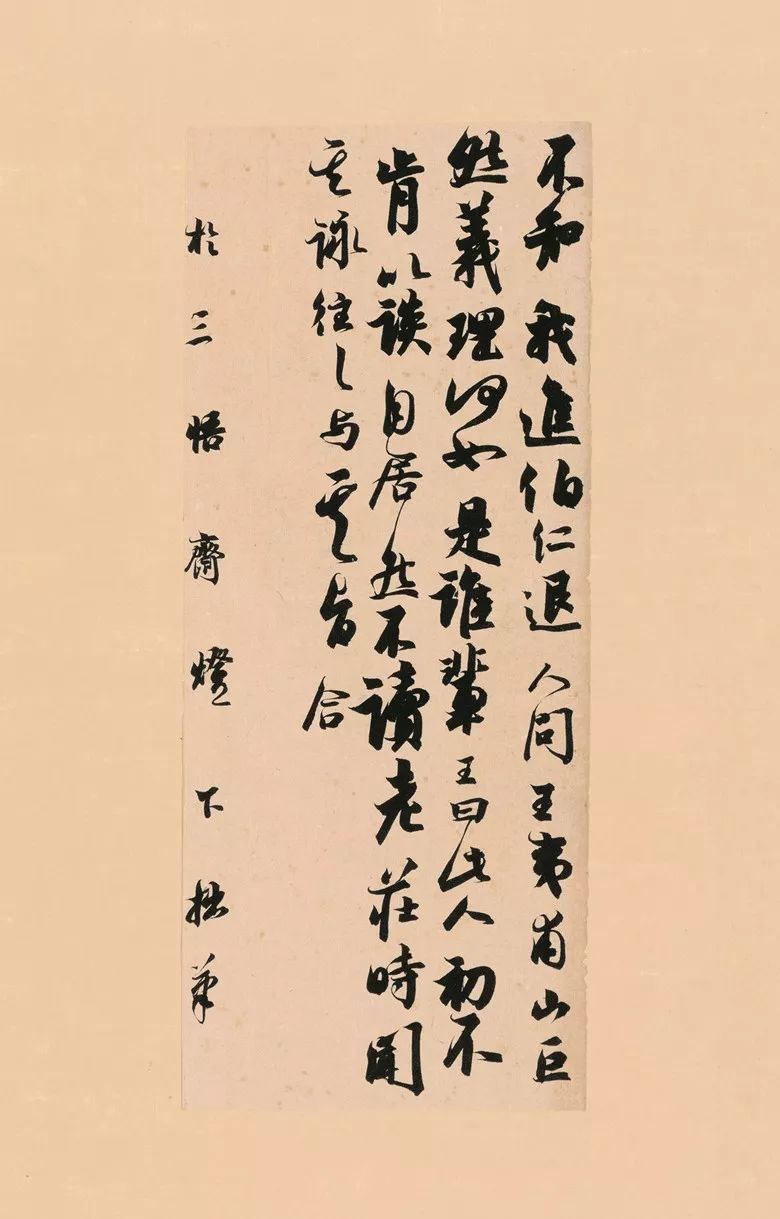 不知我進伯仁退人問王夷甫山巨
然義理何如是誰輩王曰此人初不
肯以談自居然不讀老莊時聞
其詠往々与其旨合
於三悟齋燈下拙筆